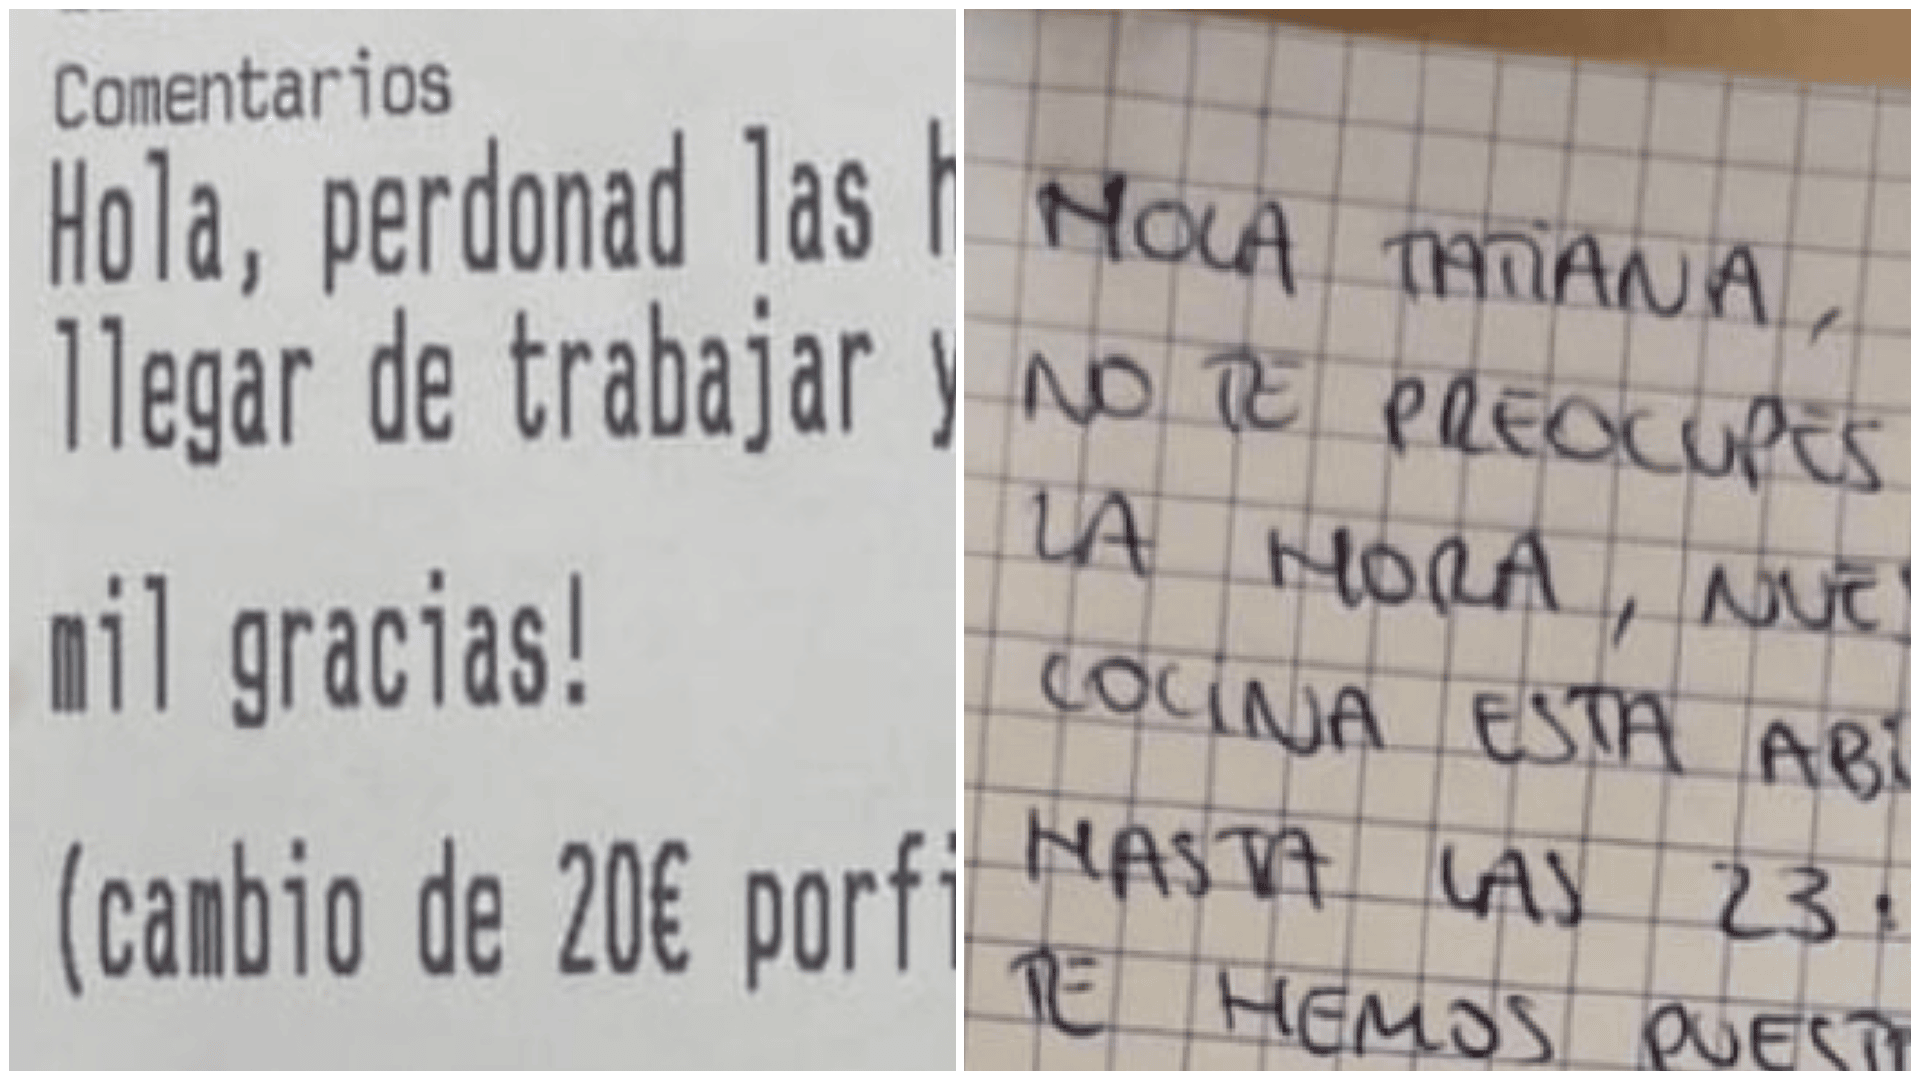 Comentarios
Hola, perdonad las h
llegar de trabajar y
mil gracias!
(cambio de 20€ porfi
HOLA TATIANA,
NO TE PREOCUPES
LA HORA, NUES
COCINA ESTA ABI
HASTA LAS 23:
TE HEMOS PUEST